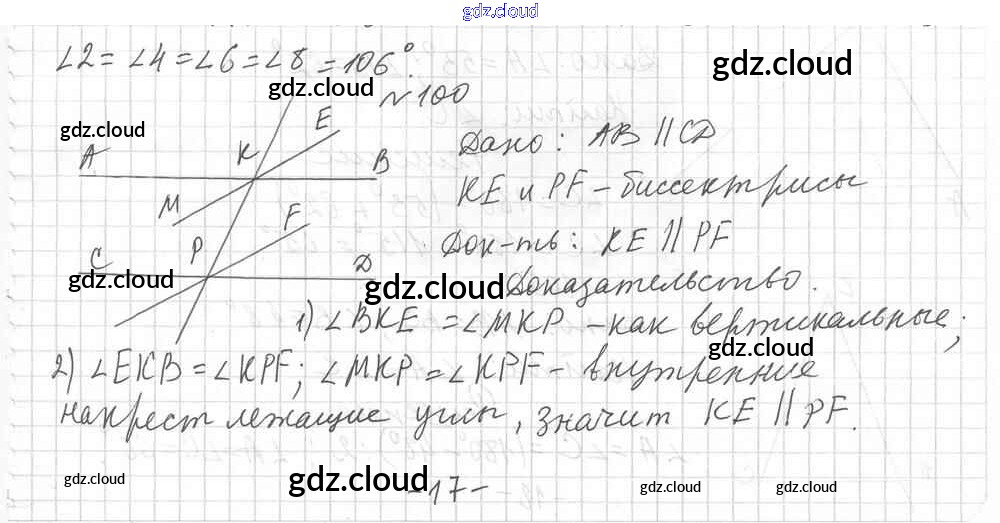 gdz.cloud
∠2 = ∠4 = ∠6 = ∠8 = 106°.
gdz.cloud
gdz.cloud
№100
gdz.cloud
A K E B
M F
C P D
Дано: AB || CD
KE и PF - биссектрисы
Док-ть: KE || PF
gdz.cloud
gdz.cloud
Доказательство.
1) ∠BKE = ∠MKP - как вертикальные;
gdz.cloud
2) ∠EKB = ∠KPF; ∠MKP = ∠KPF - внутренние
накрест лежащие углы, значит KE || PF.
gdz.cloud
gdz.cloud
-17-
gdz.cloud
gdz.cloud